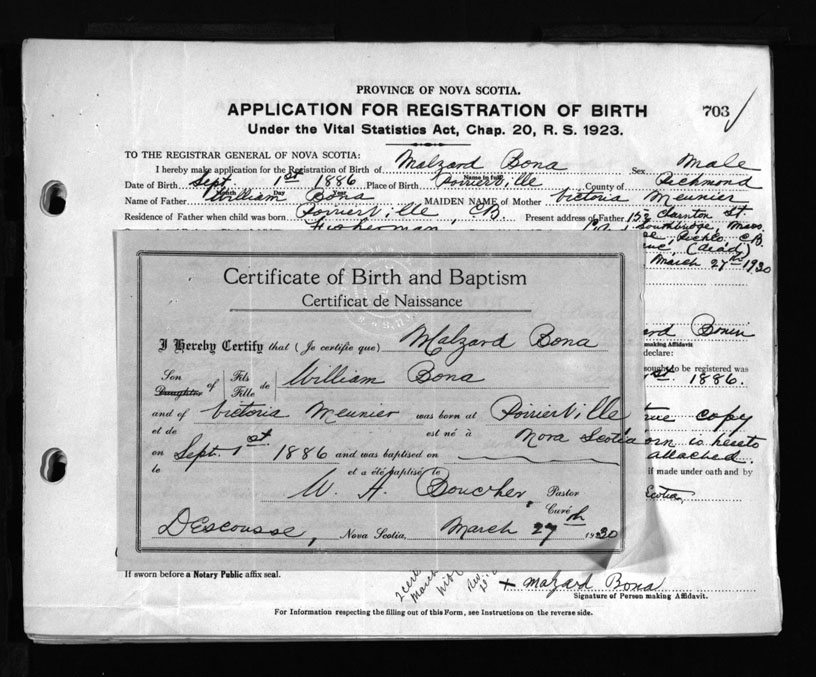 PROVINCE OF NOVA SCOTIA.
APPLICATION FOR REGISTRATION OF BIRTH
703
Under the Vital Statistics Act, Chap. 20, R. S. 1923.
TO THE REGISTRAR GENERAL OF NOVA SCOTIA:
I hereby make application for the Registration of Birth of Malzard Bona Sex Male
Name in full
Date of Birth Sept 1st 1886 Place of Birth Poirierville County of Richmond
Month Day Year
Name of Father William Bona MAIDEN NAME of Mother Victoria Meunier
Residence of Father when child was born Poirierville, CB Present address of Father 153 St.
Fisherman Southbridge, Mass.
CB.
(dead)
March 27th 1920
Certificate of Birth and Baptism
Certificat de Naissance
I Hereby Certify that (Je certifie que) Malzard Bona
Son Daughter of Fils Fille de William Bona
and of Victoria Meunier was born at Poirierville
et de est né à Nova Scotia
on Sept. 1st 1886 and was baptised on
le et a été baptisé le
W. A. Boucher, Pastor
Curé
DEscousse, Nova Scotia, March 27th 1920
Bonin
making Affidavit
declare:
sought to be registered was
1st. 1886.
true copy
orn is hereto
attached.
if made under oath and by
Scotia,
If sworn before a Notary Public affix seal.
March
Rev.
x Malzard Bona
Signature of Person making Affidavit.
For Information respecting the filling out of this Form, see Instructions on the reverse side.